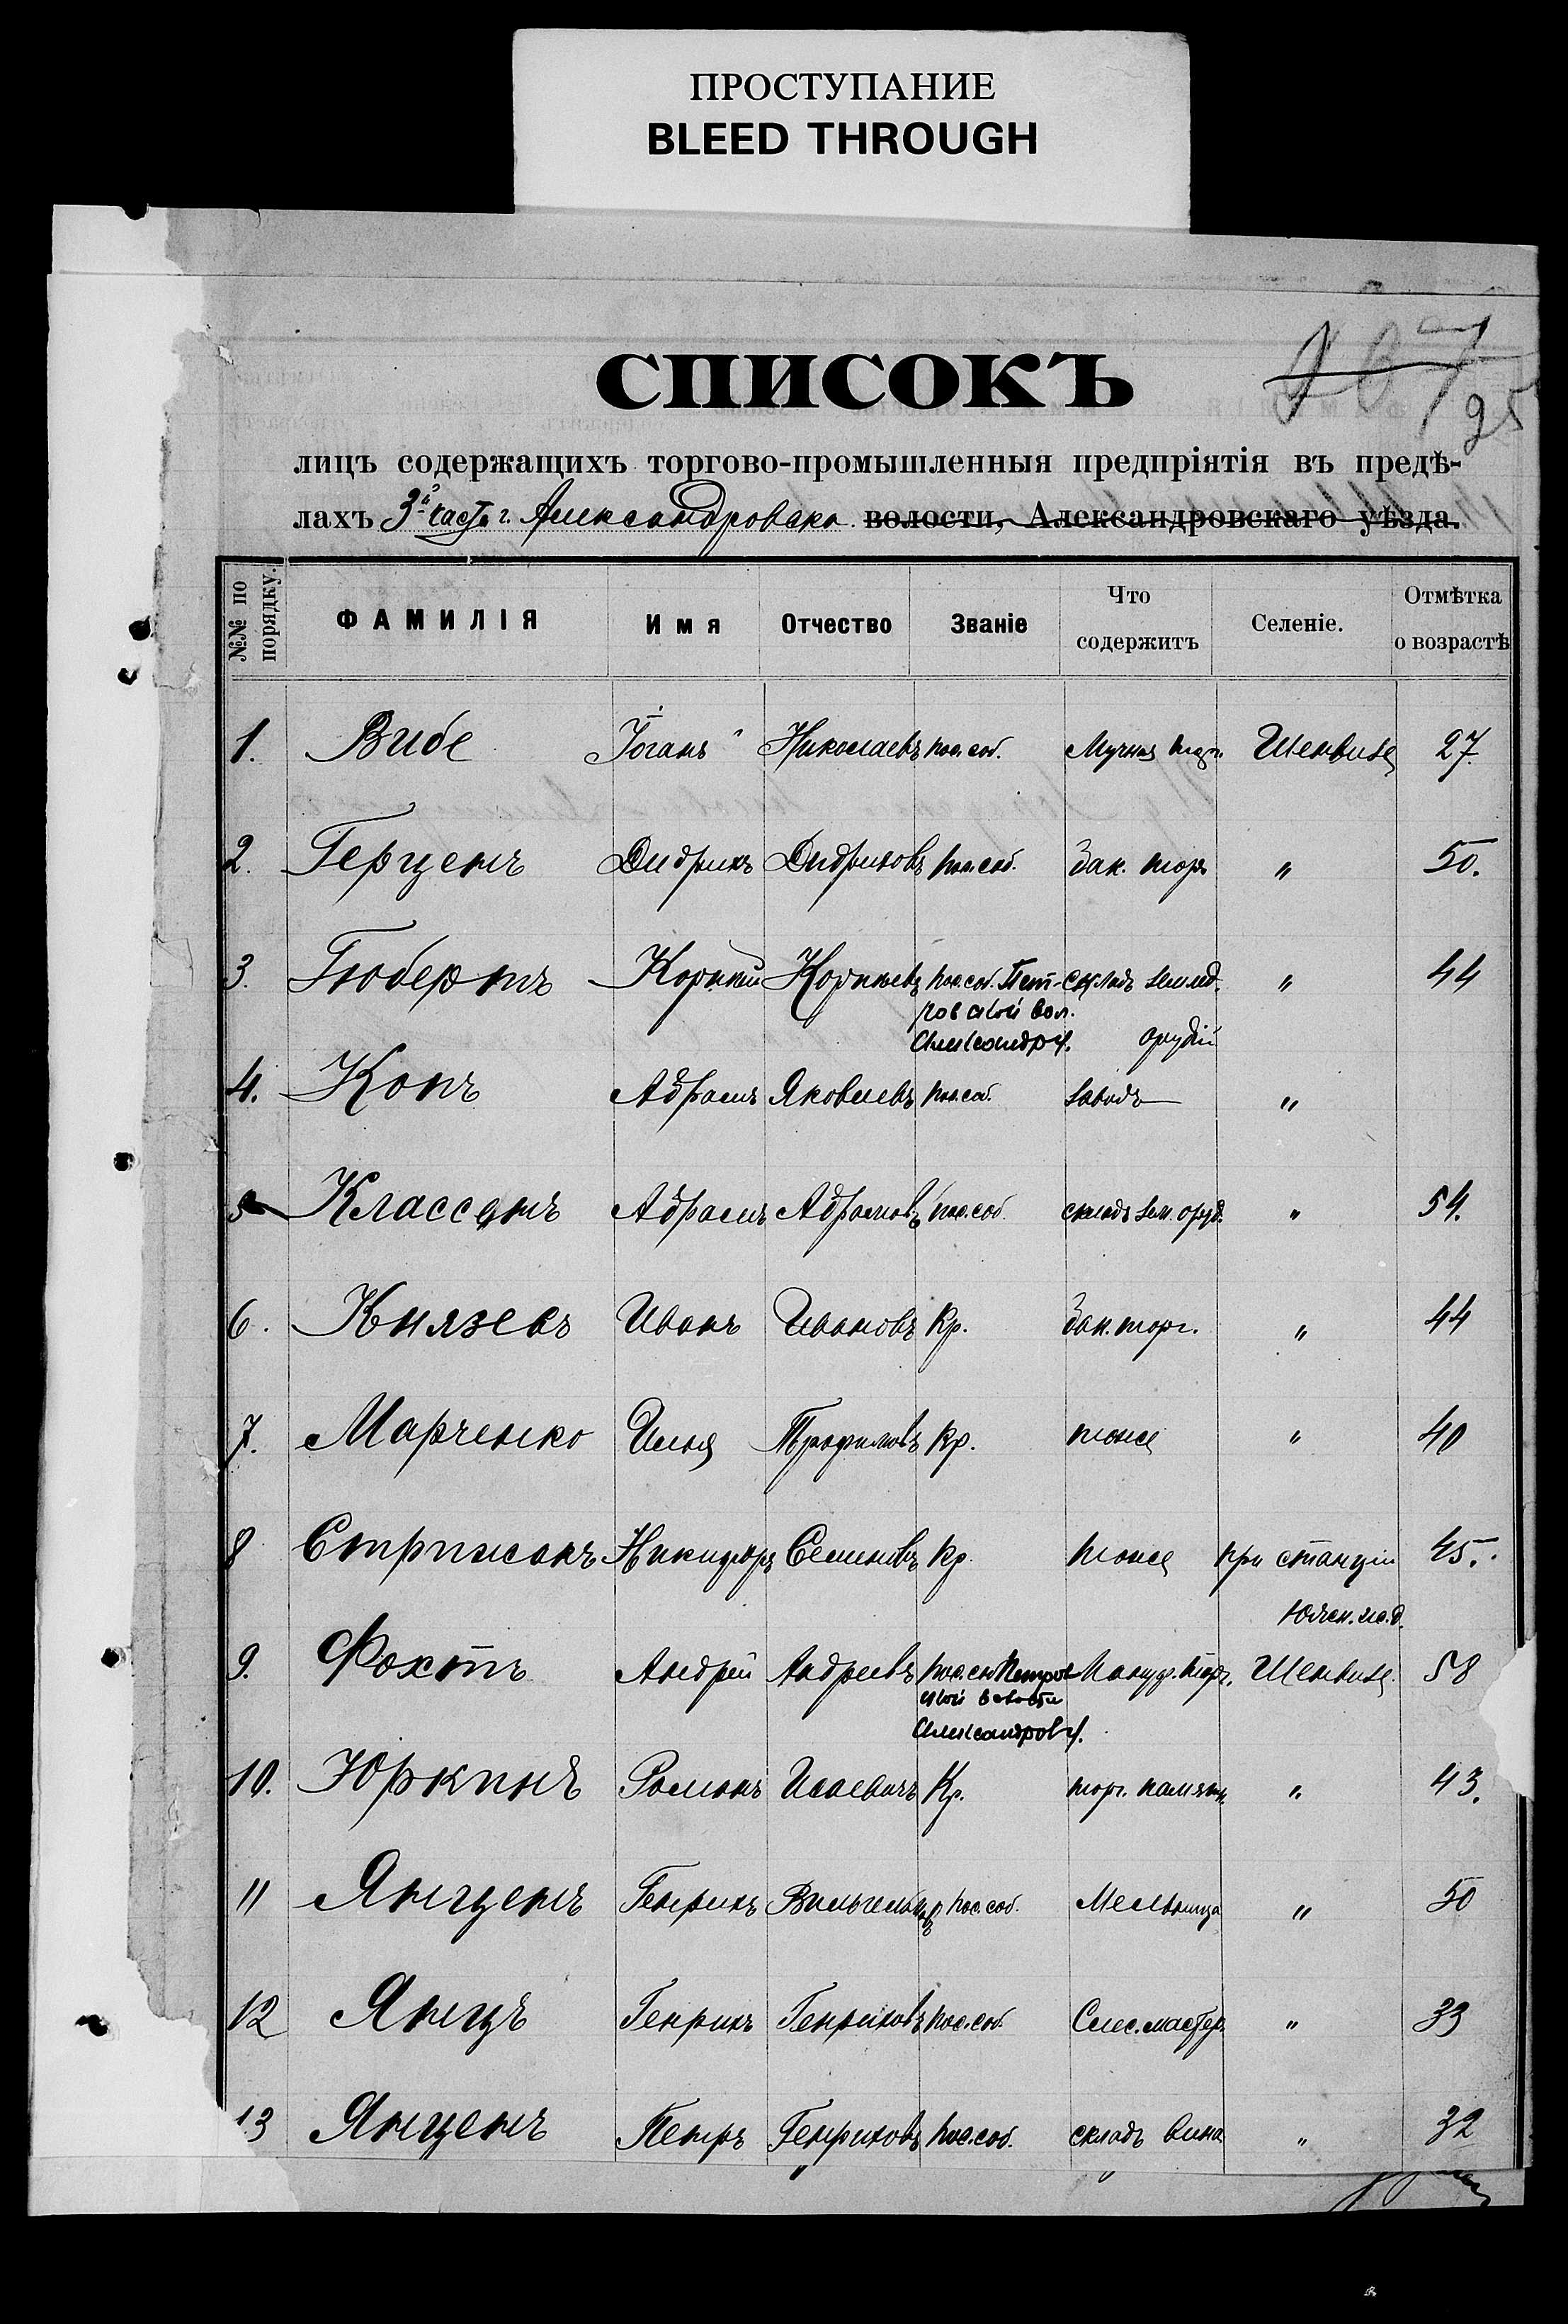 ПРОСТУПАНИЕ
BLEED THROUGH
СПИСОКЪ
95
лицъ содержащихъ торгово-промышленныя предпріятія въ предѣ-
лахъ 3й часть г. Александровска волости, Александровскаго уѣзда.
№№ по порядку. ФАМИЛІЯ Имя Отчество Званіе Что содержитъ Селеніе. Отмѣтка о возрастѣ
1. Вибе Іоганъ Николаевъ пос.соб. Мучная торг. Шенвизе 27.
2. Герценъ Дидрихъ Дидриховъ пос.соб. Бак. торг " 50.
3. Гюбертъ Корній Корніевъ пос.соб. Пет- складъ земед. " 44
ровской вол.
Александр у. орудій
4. Копъ Абрамъ Яковлевъ пос.соб. заводъ "
5 Классенъ Абрамъ Абрамовъ пос.соб. складъ зем. оруд. " 54.
6. Князевъ Иванъ Ивановъ Кр. Бак. торг. " 44
7. Марченко Илья Трофимовъ Кр. тоже " 40
8 Стрижакъ Никифоръ Семеновъ Кр. тоже при станціи 45.
Южн. ж.д.
9. Фохтъ Андрей Андреевъ пос.соб Петров- Мануф. торг. Шенвизе 58
ской волости
Александров у.
10. Юркинъ Романъ Исаевичъ Кр. торг. памятн. " 43.
11 Янценъ Генрихъ Вильгельмовъ пос.соб. Мельница " 50
12 Янцъ Генрихъ Генриховъ пос.соб. Слес.мастер. " 33
13 Янценъ Петръ Генриховъ пос.соб. складъ вина " 32